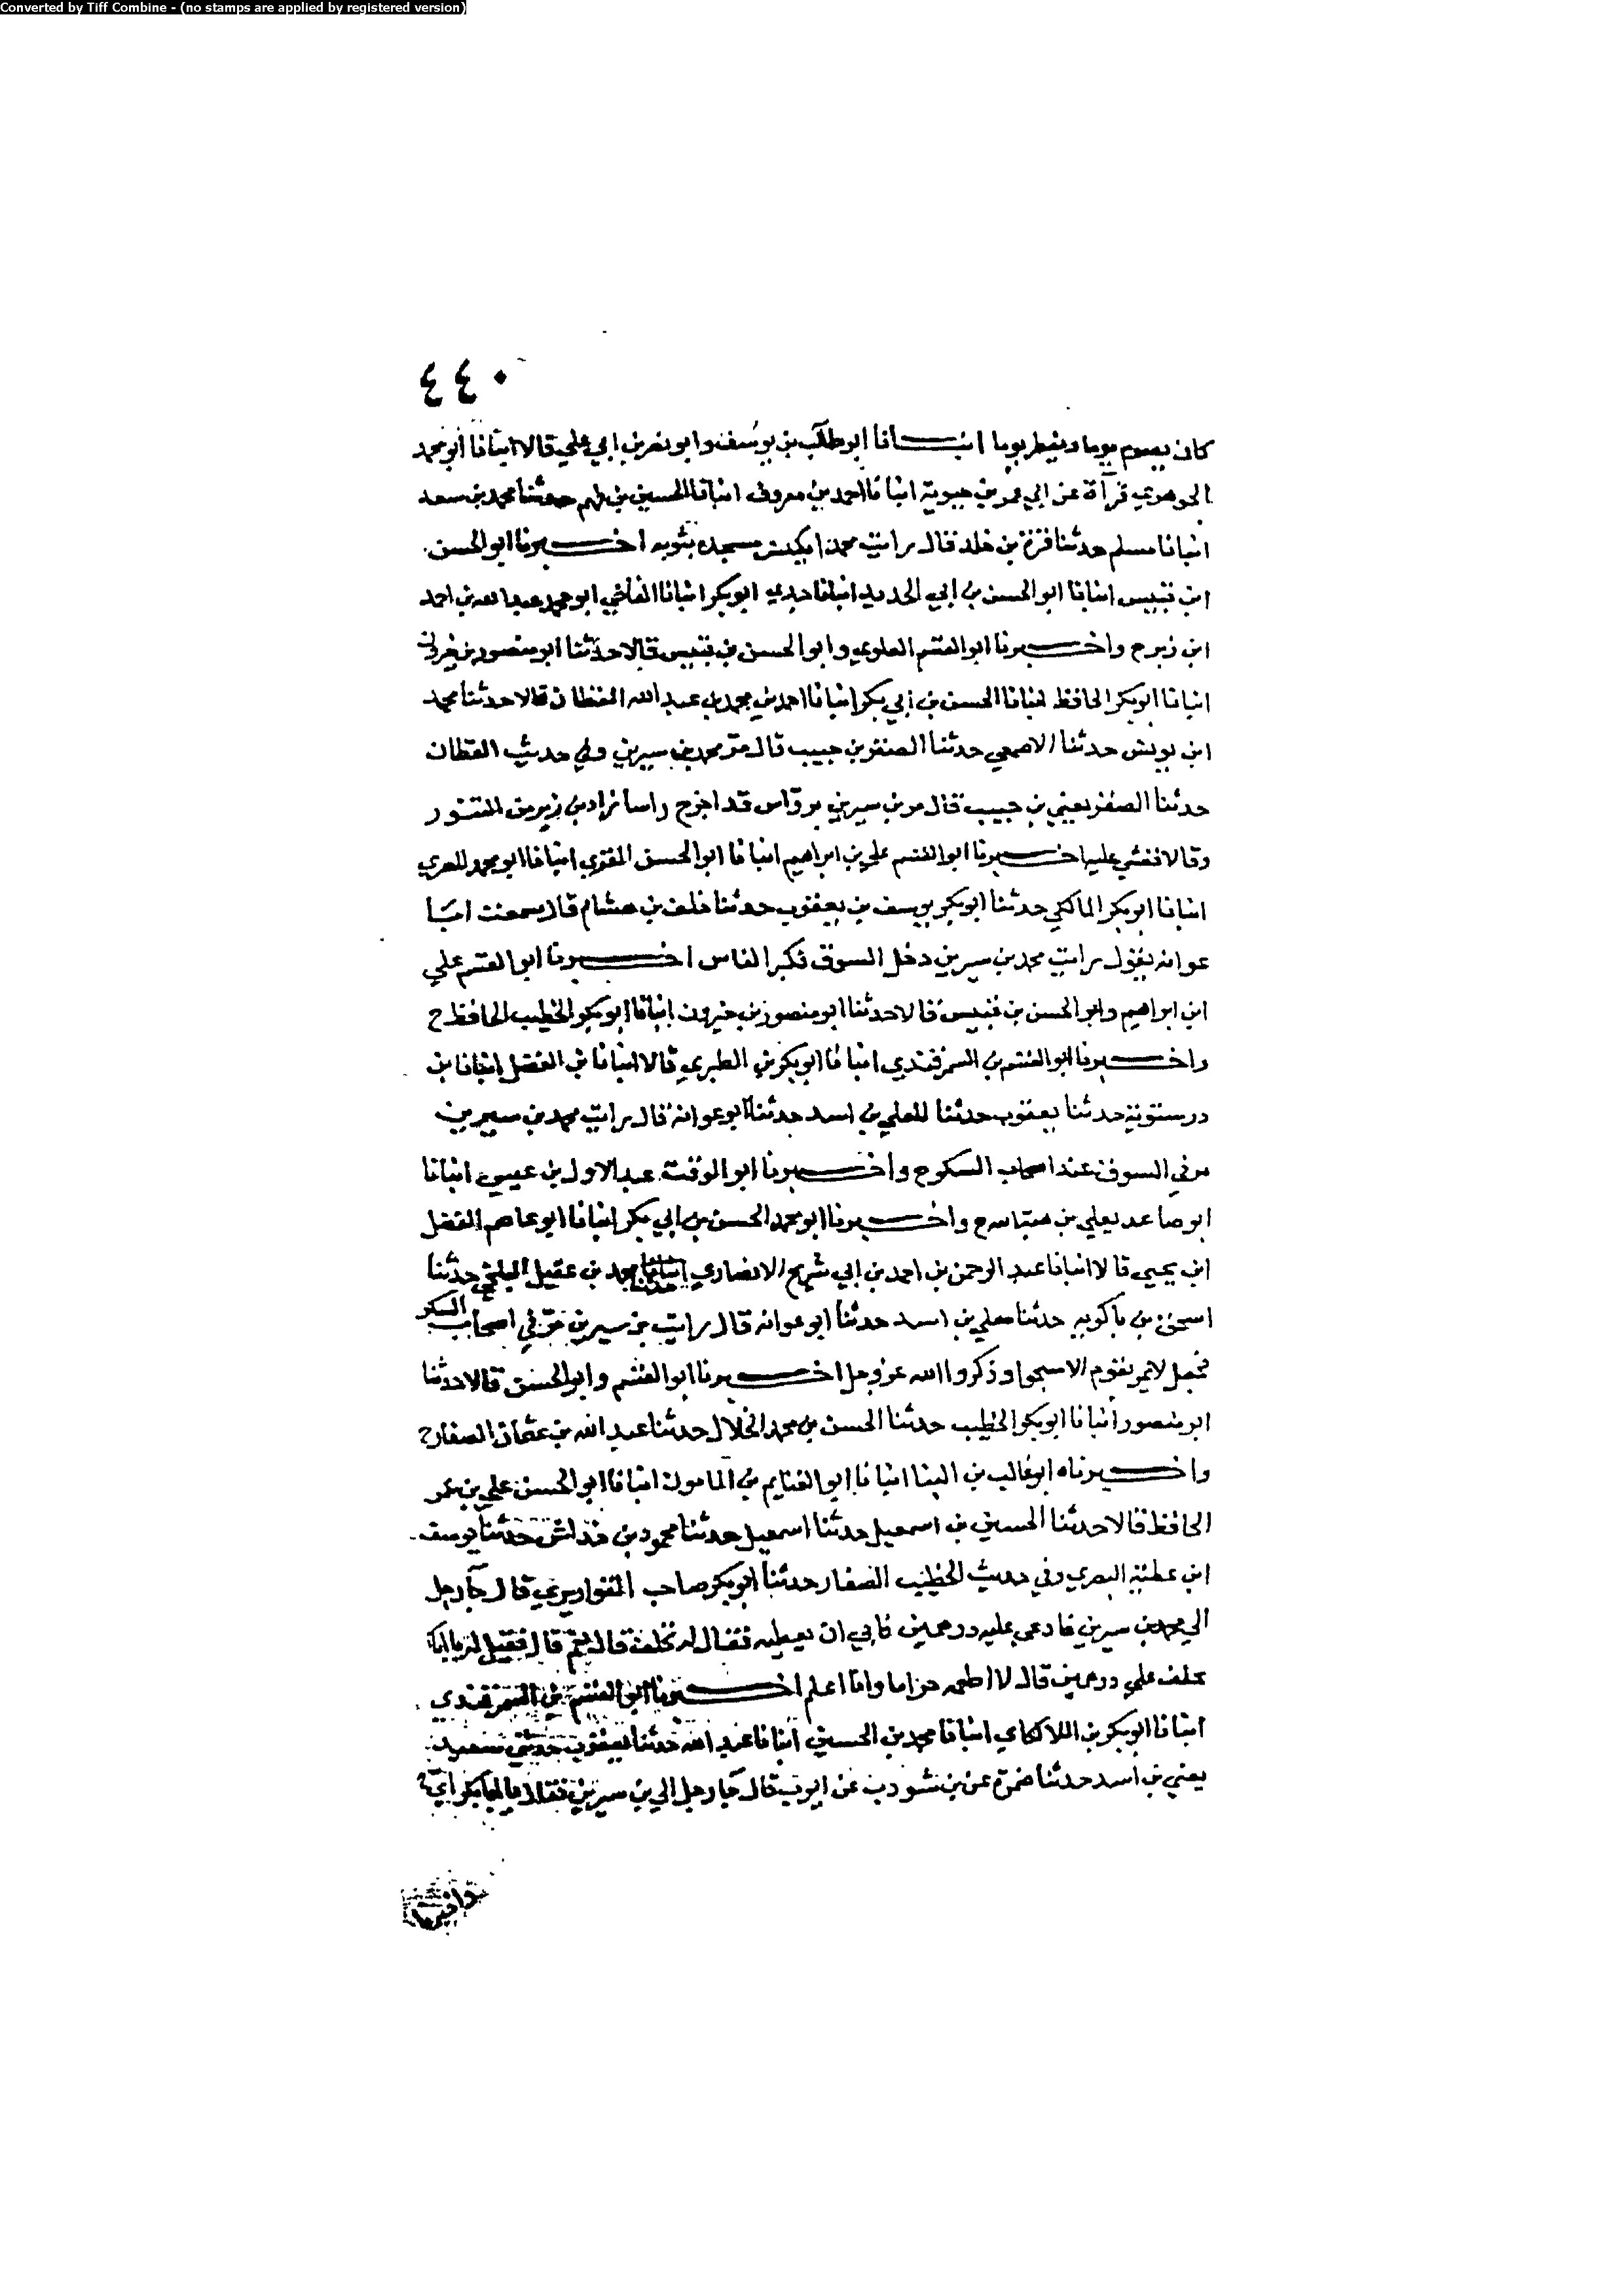 Converted by Tiff Combine - (no stamps are applied by registered version)
٤٤٠
كان يصوم يوما ويفطر يوما انبـــانا ابو طالب بن يوسف وابو نصر بن ابي علي قالا انبانا ابو محمد
الجوهري قرآة عن ابي عمر بن حيوية انبانا احمد بن معروف انبانا الحسين بن فهم حدثنا محمد بن سعد
انبانا مسلم حدثنا قرة بن خلد قال رايت محمدا يكنس مسجده بثوبه اخـــبرنا ابو الحسن
ابن قبيس انبانا ابو الحسن بن ابي الحديد انبانا جدي ابو بكر انبانا القاضي ابو محمد عبد الله بن احمد
ابن زبر ح واخـــبرنا ابو القسم العلوي وابو الحسن بن قبيس قالا حدثنا ابو منصور بن خيرون
انبانا ابو بكر الحافظ انبانا الحسن بن ابي بكر انبانا احمد بن محمد بن عبد الله القطان قالا حدثنا محمد
ابن يونس حدثنا الاصمعي حدثنا الصقر بن حبيب قال مر محمد بن سيرين وفي حديث القطان
حدثنا الصقر يعني بن حبيب قال مر بن سيرين برواس قد اخرج راسا زاد بن زبر من التنور
وقالا فغشي عليه اخـــبرنا ابو القسم علي بن ابراهيم انبانا ابو الحسن المقري انبانا ابو محمد المصري
انبانا ابو بكر المالكي حدثنا ابو بكر يوسف بن يعقوب حدثنا خلف بن هشام قال سمعت ابا
عوانه يقول رايت محمد بن سيرين دخل السوق فكبر الناس اخـــبرنا ابو القسم علي
ابن ابراهيم وابو الحسن بن قبيس قالا حدثنا ابو منصور بن خيرون انبانا ابو بكر الخطيب الحافظ ح
واخـــبرنا ابو القسم بن السمرقندي انبانا ابو بكر بن الطبري قالا انبانا بن الفضل انبانا بن
درستوية حدثنا يعقوب حدثنا المعلي بن اسد حدثنا ابو عوانه قال رايت محمد بن سيرين
مر في السوق عند اصحاب السكر ح واخـــبرنا ابو الوقت عبد الاول بن عيسى انبانا
ابو صاعد يعلي بن هبة الله ح واخـــبرنا ابو محمد الحسن بن ابي بكر انبانا ابو عاصم الفضل
ابن يحيى قالا انبانا عبد الرحمن بن احمد بن ابي شريح الانصاري انبانا محمد بن عقيل البلخي حدثنا
اسحق بن باكويه حدثنا معلي بن اسد حدثنا ابو عوانه قال رايت بن سيرين مر في اصحاب السكر
فجعل لا يمر بقوم الا سبحوا وذكروا الله عز وجل اخـــبرنا ابو القسم وابو الحسن قالا حدثنا
ابو منصور انبانا ابو بكر الخطيب حدثنا الحسن بن محمد الخلال حدثنا عبد الله بن عثمان الصفار ح
واخـــبرناه ابو غالب بن البنا انبانا ابو الغنايم بن المامون انبانا ابو الحسن علي بن عمر
الحافظ قالا حدثنا الحسين بن اسمعيل حدثنا اسمعيل حدثنا محمود بن خداش حدثنا يوسف
ابن عطية البصري وفي حديث الخطيب الصفار حدثنا ابو بكر صاحب القواريري قال جآ رجل
الي محمد بن سيرين فادعي عليه درهمين فابي ان يعطيه فقال له تحلف قال نعم قال فقيل له يا ابا بكر
تحلف علي درهمين قال لا اطعمه حراما وانا اعلم اخـــبرنا ابو القسم بن السمرقندي
انبانا ابو بكر بن اللالكاي انبانا محمد بن الحسين انبانا عبد الله حدثنا يعقوب حدثني سعيد
يعني بن اسد حدثنا ضمرة عن بن شوذب عن ايوب قال جآ رجل الي بن سيرين فقال يا ابا بكر